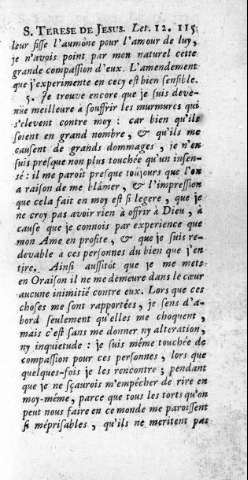 S. TERESE DE JESUS. Let. 12. 115
leur fisse l'aumône pour l'amour de luy,
je n'avois point par mon naturel cette
grande compassion d'eux. L'amendement
que j'experimente en cecy est bien sensible.
5. Je trouve encore que je suis deve-
nuë meilleure à souffrir les murmures qui
s'elevent contre moy : car bien qu'ils
soient en grand nombre, & qu'ils me
causent de grands dommages, je n'en
suis presque non plus touchée qu'un insen-
sé : il me paroît presque toujours que l'on
a raison de me blâmer, & l'impression
que cela fait en moy est si legere, que je
ne croy pas avoir rien à offrir à Dieu, à
cause que je connois par experience que
mon Ame en profite, & que je suis re-
devable à ces personnes du bien que j'en
tire. Ainsi aussitôt que je me mets
en Oraison il ne me demeure dans le cœur
aucune inimitié contre eux. Lors que ces
choses me sont rapportées, je sens d'a-
bord seulement qu'elles me choquent,
mais c'est sans me donner ny alteration,
ny inquietude : je suis même touchée de
compassion pour ces personnes, lors que
quelques-fois je les rencontre ; pendant
que je ne sçaurois m'empêcher de rire en
moy-même, parce que tous les torts qu'on
peut nous faire en ce monde me paroissent
si méprisables, qu'ils ne meritent pas